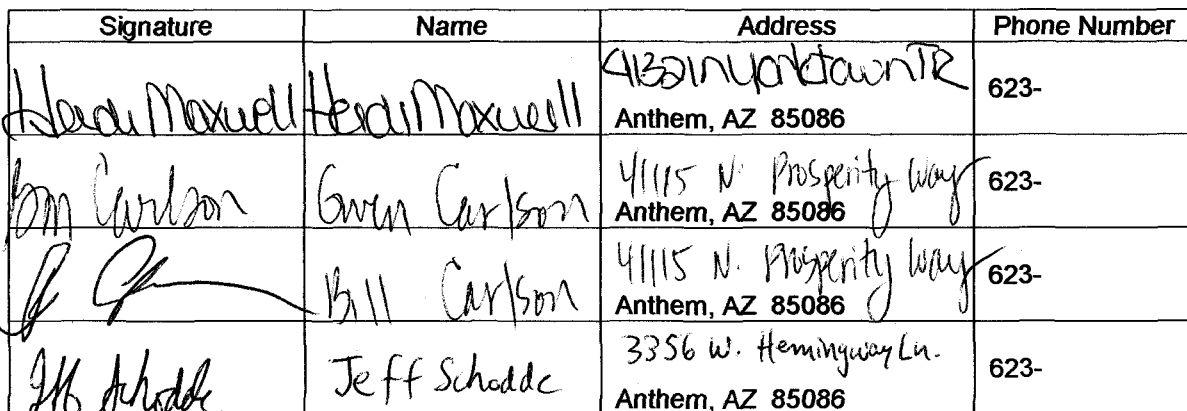 Signature Name Address Phone Number
Heidi Maxwell Heidi Maxwell 41321 N Yorktown TR 623-
Anthem, AZ 85086
Gwen Carlson 41115 N. Prosperity Way 623-
Carlson Anthem, AZ 85086
Bill Carlson 41115 N. Prosperity Way 623-
Anthem, AZ 85086
Jeff Schodde Jeff Schodde 3356 W. Hemingway Ln. 623-
Anthem, AZ 85086